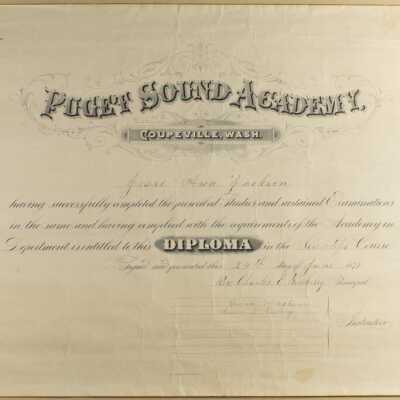 PUGET SOUND ACADEMY,
COUPEVILLE, WASH.
Jesse Jackson
having successfully completed the prescribed studies and sustained Examinations
in the same and having complied with the requirements of the Academy in
Department is entitled to this DIPLOMA in the Course
Signed and presented this 29th day of June
Rev. Charles E. Principal
Instructors